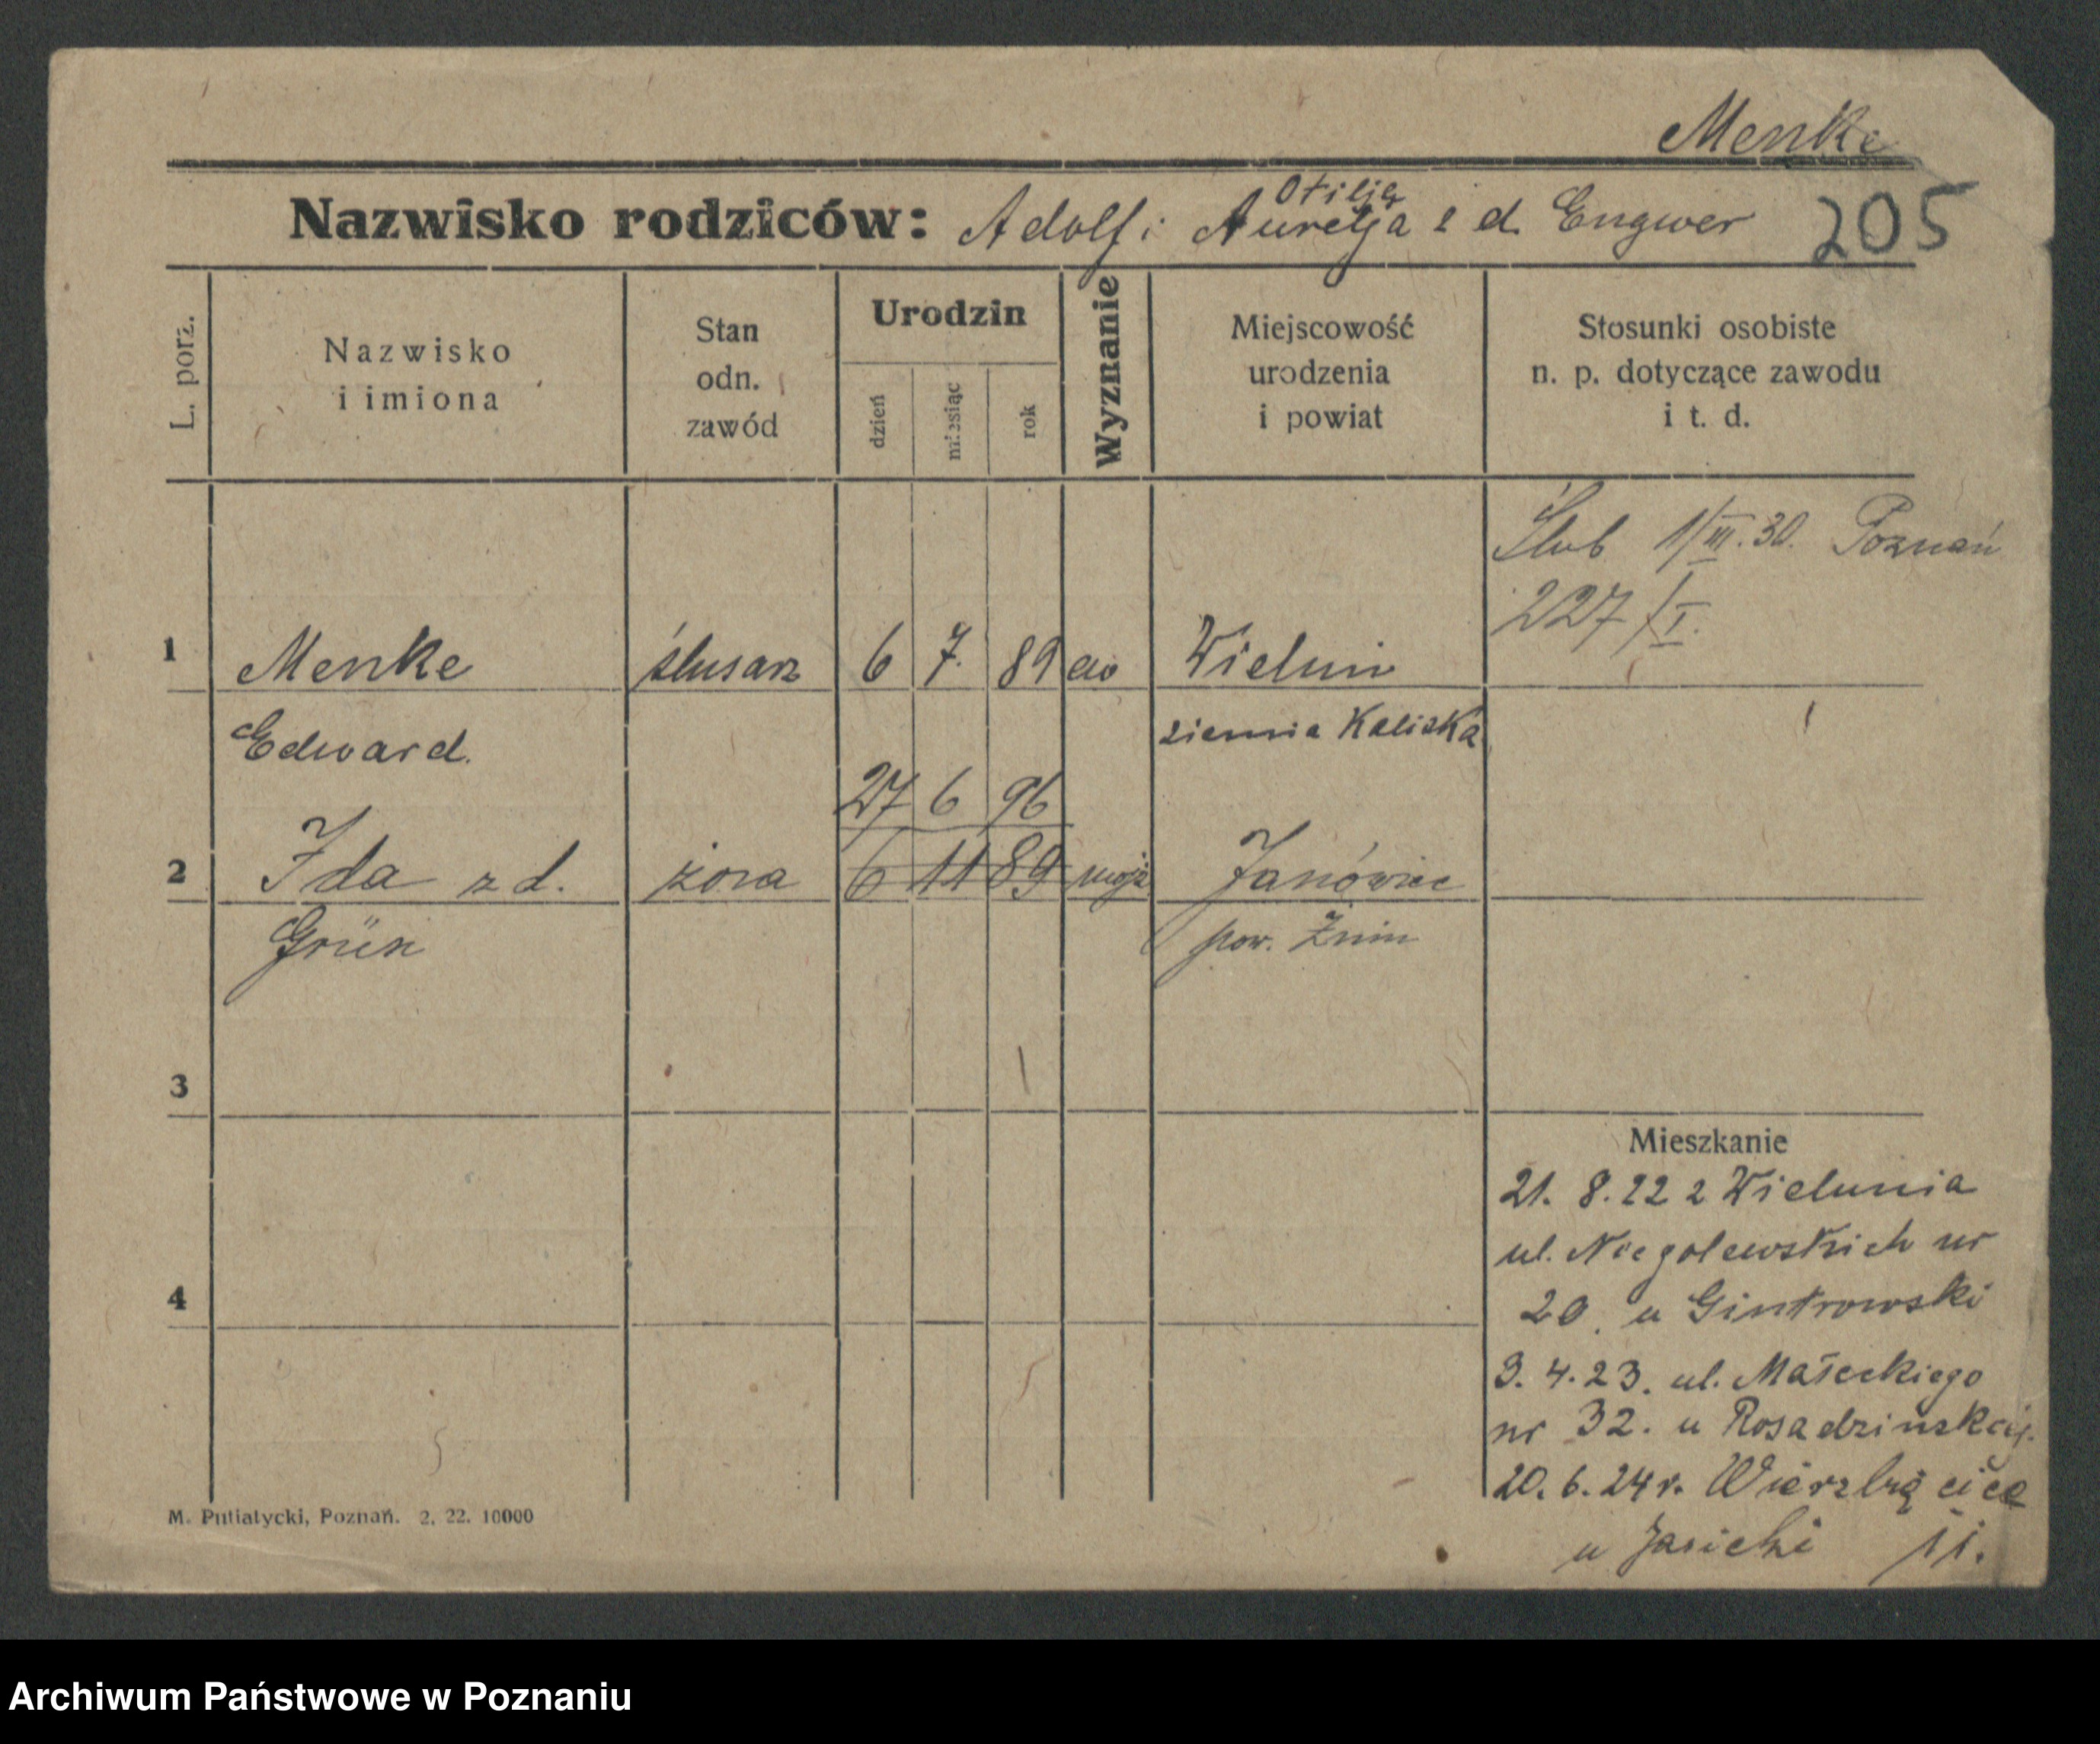 Menke
Nazwisko rodziców: Adolf i Aurelja z d. Engwer 205
Otilja
L. porz.
Nazwisko i imiona
Stan odn. zawód
Urodzin
dzień
miesiąc
rok
Wyznanie
Miejscowość urodzenia i powiat
Stosunki osobiste n. p. dotyczące zawodu i t. d.
Ślub 1/III.30. Poznań
227/I.
1 Menke ślusarz 6 7. 89 Wieluń
Edward. ziemia Kaliska
27 6 96
2 Ida z d. żona 6 11 89 mojż Janówiec
Grün pow. Żnin
3
Mieszkanie
21. 8. 22 z Wielunia
ul. Niegolewskich nr
20. u Gintrowski
4
3. 4. 23. ul. Małeckiego
nr 32. u Rosadzińskiej.
20. 6. 24 r. Wierzbięcice
u Jasicki 11.
M. Putiatycki, Poznań. 2. 22. 10000
Archiwum Państwowe w Poznaniu